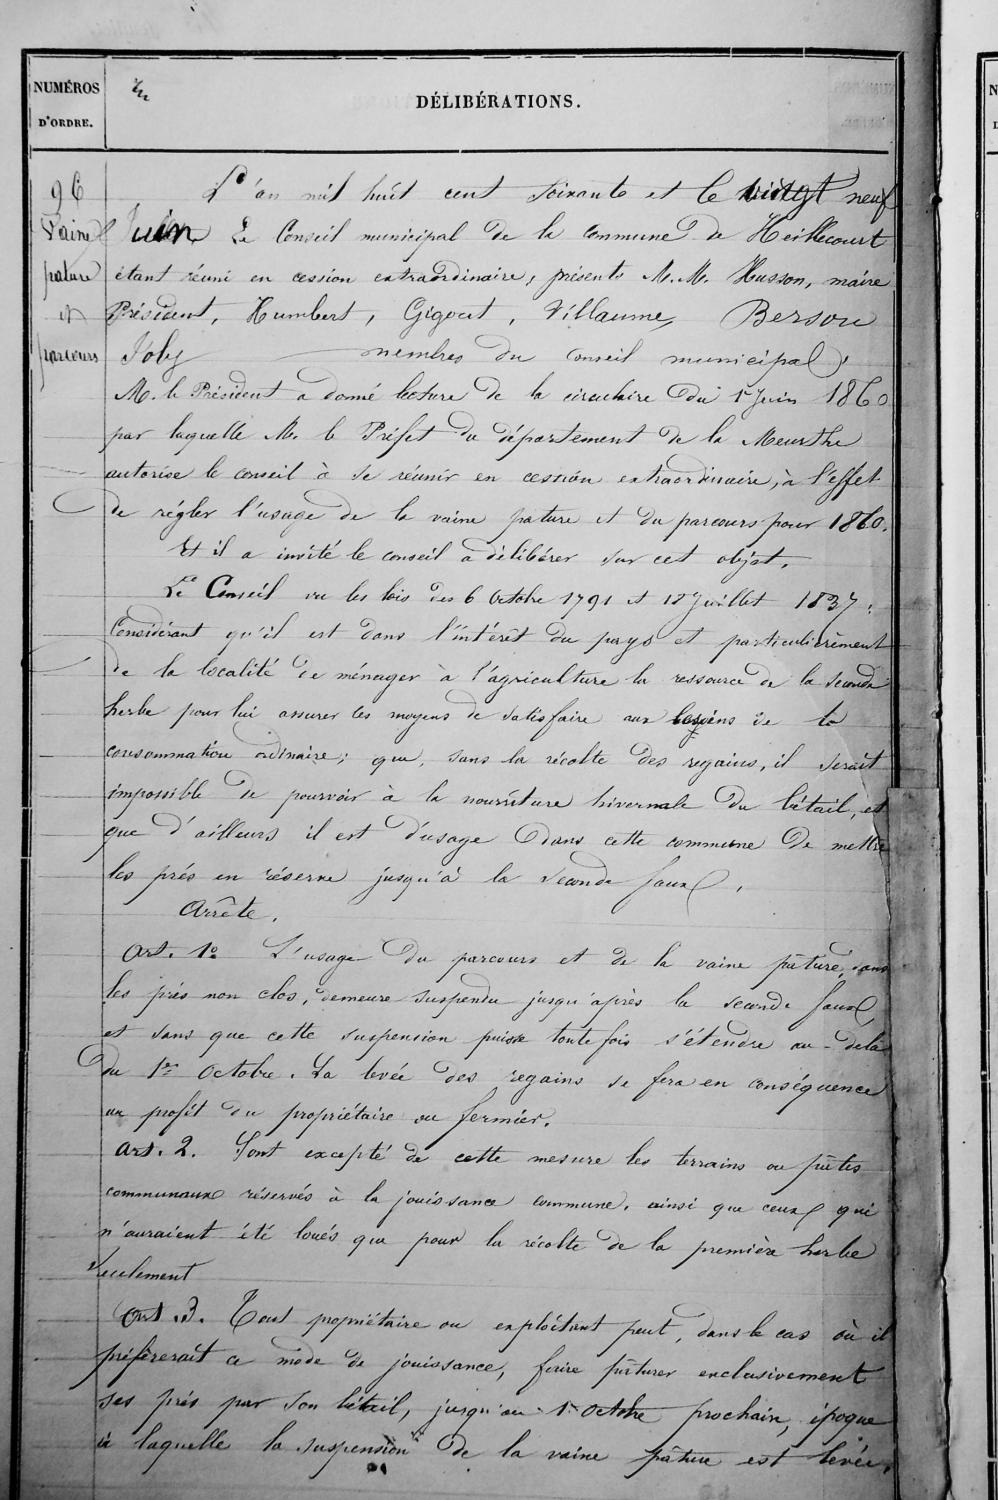 NUMÉROS
D'ORDRE.
DÉLIBÉRATIONS.
96
Vaine
pature
et
parcours
L'an mil huit cent soixante et le vingt neuf
Juin Le Conseil municipal de la commune de Heillecourt
étant réuni en cession extraordinaire, présents M.M. Husson, maire
Président, Humbert, Gigout, Villaume, Berson
Joly membres du conseil municipal.
M. le Président a donné lecture de la circulaire du 1er Juin 1860
par laquelle M. le Préfet du département de la Meurthe
autorise le conseil à se réunir en cession extraordinaire, à l'effet
de régler l'usage de la vaine pature et du parcours pour 1860.
Et il a invité le conseil a délibérer sur cet objet.
Le Conseil vu les lois des 6 Octobre 1791 et 18 Juillet 1837;
Considérant qu'il est dans l'intérêt du pays et particulièrement
de la localité de ménager à l'agriculture la ressource de la seconde
herbe pour lui assurer les moyens de satisfaire aux besoins de la
consommation ordinaire; que, sans la récolte des regains, il serait
impossible de pourvoir à la nourriture hivernale du bétail, et
que d'ailleurs il est d'usage dans cette commune de mettre
les prés en réserve jusqu'à la seconde faux,
Arrête.
Art. 1o L'usage du parcours et de la vaine pâture, dans
les prés non clos, demeure suspendu jusqu'après la seconde faux,
et sans que cette suspension puisse toutefois s'étendre au-delà
du 1er Octobre. La levée des regains se fera en conséquence
au profit du propriétaire ou fermier.
Art. 2. Sont excepté de cette mesure les terrains ou pâtis
communaux réservés à la jouissance commune, ainsi que ceux qui
n'auraient été loués que pour la récolte de la première herbe
seulement
Art. 3. Tout propriétaire ou exploitant peut, dans le cas où il
préférerait ce mode de jouissance, faire pâturer exclusivement
ses prés par son bétail, jusqu'au 1er Octobre prochain, époque
à laquelle la suspension de la vaine pâture est levée.